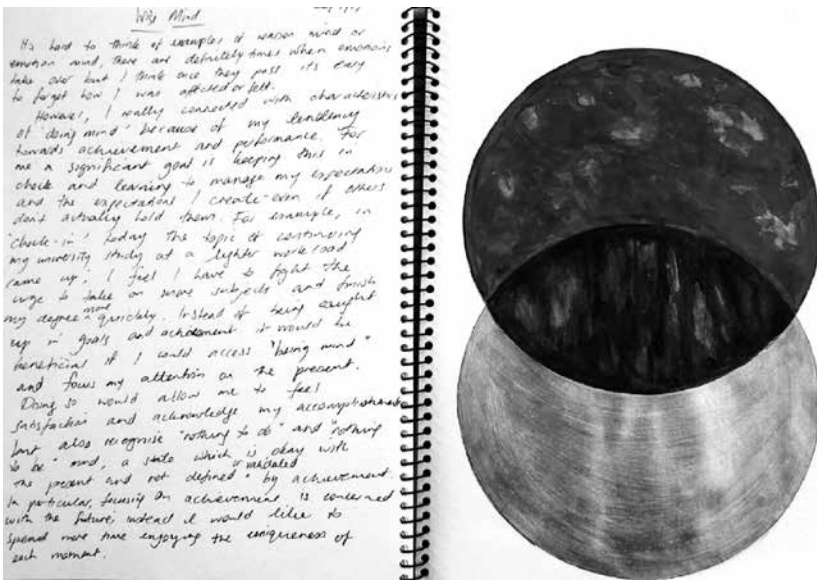 Wise Mind
It's hard to think of examples of reason mind or
emotion mind, there are definitely times when emotions
take over but I think once they pass its easy
to forget how I was affected or felt.
However, I really connected with characteristics
of 'doing mind' because of my tendency
towards achievement and performance. For
me a significant goal is keeping this in
check and learning to manage my expectations
and the expectations I create - even if others
don't actually hold them. For example, in
'check-in' today the topic of continuing
my university study at a lighter work load
came up; I feel I have to fight the
urge to take on more subjects and finish
my degree more quickly. Instead of being caught
up in goals and achievement it would be
beneficial if I could access "being mind"
and focus my attention on the present.
Doing so would allow me to feel
satisfaction and acknowledge my accomplishments
but also recognise "nothing to do" and "nothing
to be" mind, a state which is okay with
the present and not defined or validated by achievement.
In particular, focusing on achievement is concerned
with the future, instead I would like to
spend more time enjoying the uniqueness of
each moment.